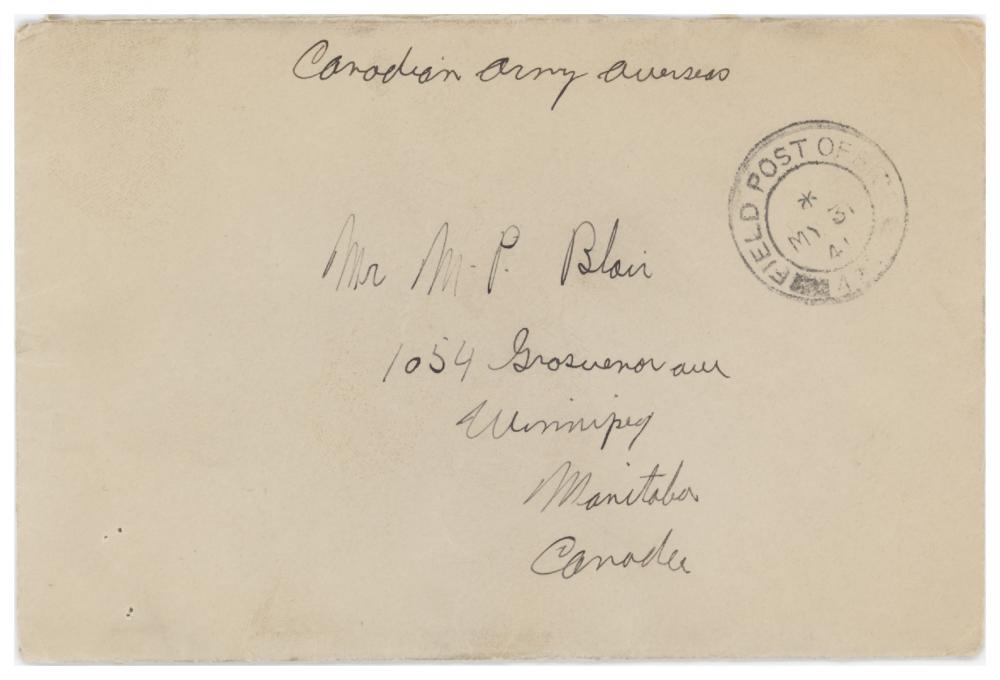 Canadian Army Overseas
FIELD POST OFFICE
* 15
MY
41
Mr M. P. Blair
1054 Grosvenor ave
Winnipeg
Manitoba
Canada